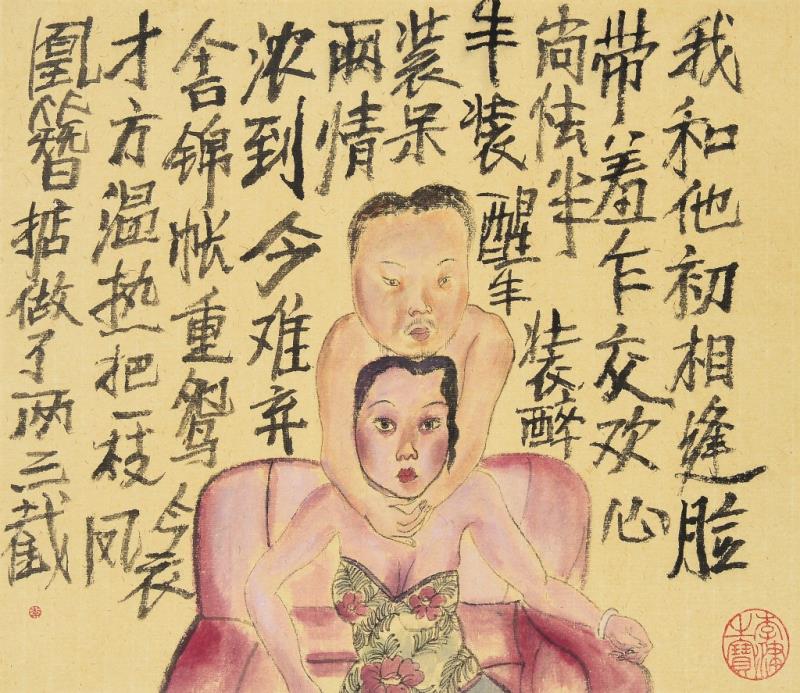 我和他初相缝脸
带羞乍交欢心
尚怯半装醉
半装醒半
装呆
两情
浓到今难弃
舍锦帐重鸳衾
才方温热把一枝凤
凰簪掂做了两三截
李津
之寶